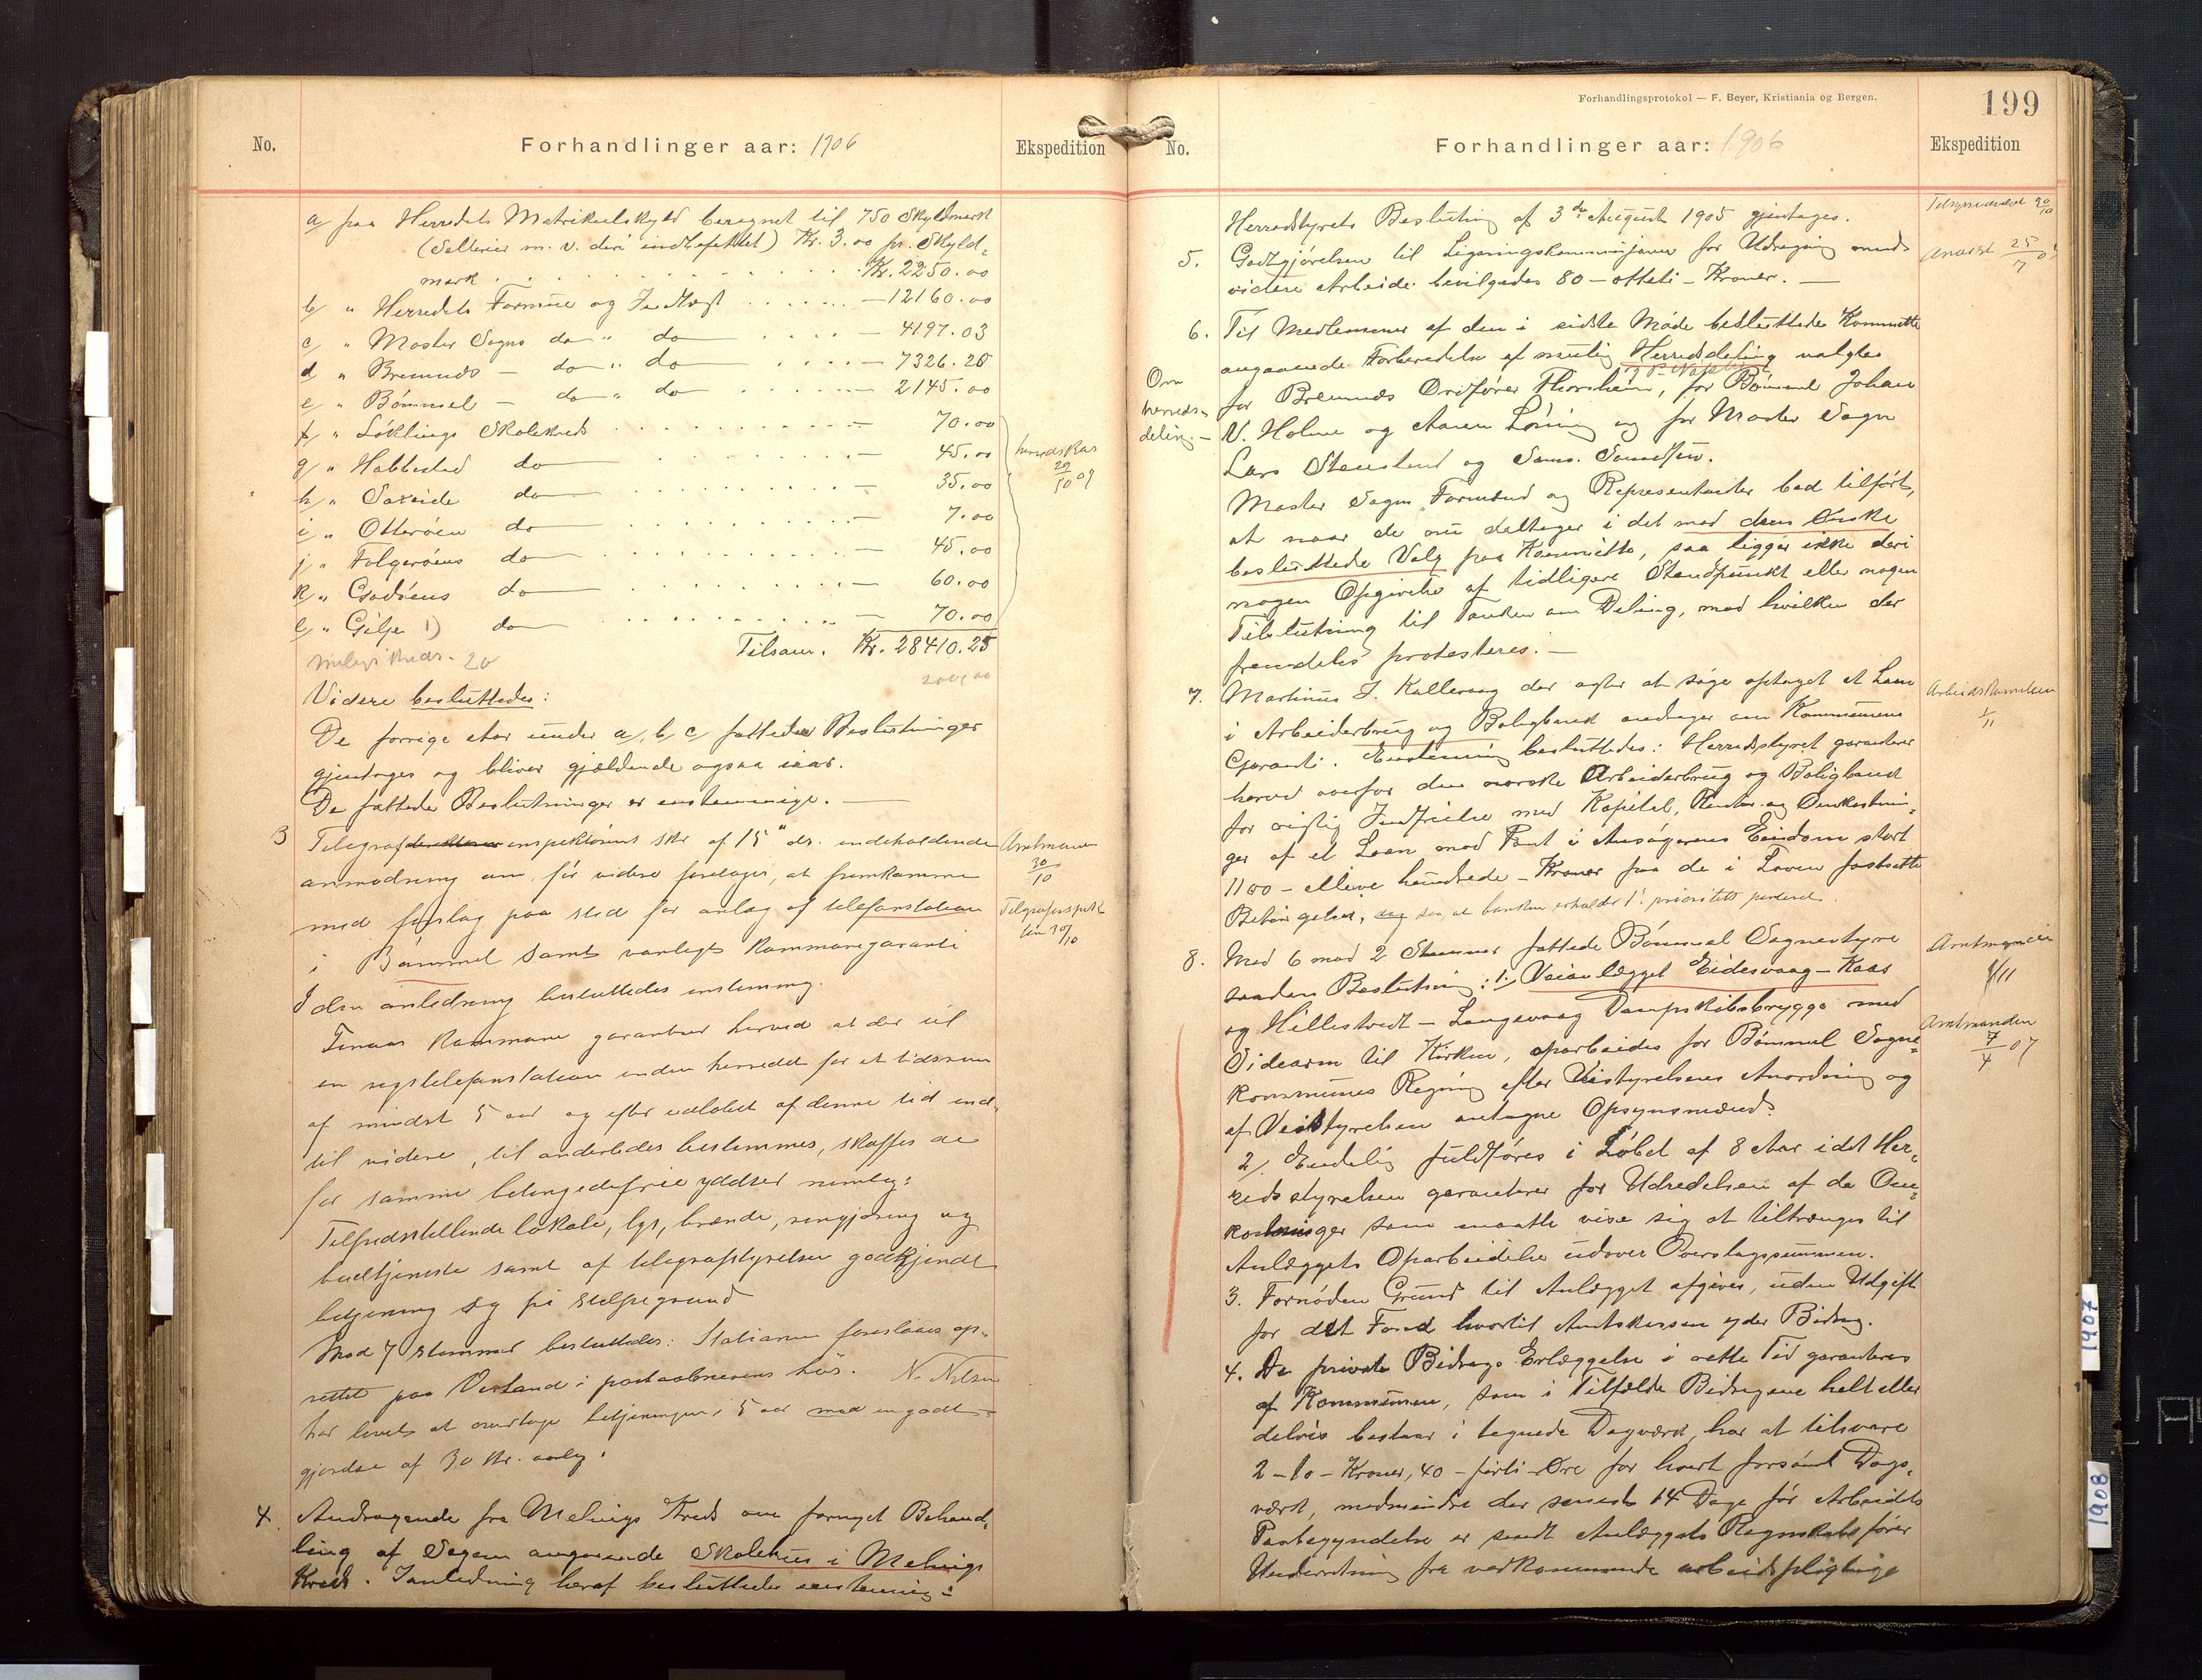 No.
Forhandlinger aar: 1906
Ekspedition
a/ paa Herredets Matrikulskyld beregnet til 750 Skyldmark
(Salterier m. v. deri indbefattet) Kr. 3.00 pr. Skyld-
mark . . . . Kr. 2250.00
b/ " Herredets Formue og Indtægt . . . . — 12160.00
c/ " Moster Sogns do " do . . . — 4197.03
d/ " Bremnes — do " do . . . — 7326.25
e/ " Bömmel — do " do . . . — 2145.00
f/ " Löklings Skolekreds . . . — 70.00
g/ " Habbestad do . . . — 45.00
h/ " Saxeide do . . . — 35.00
i/ " Otteröen do . . . — 7.00
j/ " Folgeröens do . . . — 45.00
k/ " Goddöens do . . . — 60.00
l/ " Gilje 1) do . . . — 70.00
herredskas
29
10 09
Tilsam. Kr. 28410.25
Melings Kreds. 20
Videre besluttedes:
De forrige Aar under a, b, c, fattede Beslutninger
gjentages og bliver gjældende ogsaa iaar.
De fattede Beslutninger er enstemmige. —
3 Telegrafinspektörens skr af 15 ds. indeholdende
anmodning om för videre foretages, at fremkomme
med forslag paa sted for anlæg af telefonstation
i Bömmel samt vanlige kommunegaranti
I den anledning besluttedes enstemmig.
Amtmann
30/10
Telgrafinspek
tör 30/10
Finaas kommune garanterer herved at der til
en rigstelefonstation inden herredet for et tidsrum
af mindst 5 aar og efter udlöbet af denne tid ind-
til videre, til anderledes bestemmes, skaffes de
for samme betingedefrie ydelser nemlig:
Tilfredsstillende lokale, lys, brænde, rengjöring og
budtjeneste samt af telegrafstyrelsen godkjendt
betjening og fri stolpegrund
Mod 7 stemmer besluttedes: Stationen foreslaaes op-
rettet paa Vestand i postaabnerens hus. N. Nilsen
har lovet at overtage betjeningen i 5 aar mod en godt-
gjörelse af 30 kr. aarlig.
4. Andragende fra Melings Kreds om fornyet Behand-
ling af Sagen angaaende Skolehus i Melings
Kreds. I anledning heraf besluttedes enstemmig:
Forhandlingsprotokol — F. Beyer, Kristiania og Bergen.
199
No.
Forhandlinger aar: 1906
Ekspedition
Herredstyrets Beslutning af 3die August 1905 gjentages.
30/10
5. Godtgjörelsen til Ligningskommisjonen for Udregning med
videre Arbeide bevilgedes 80 – otteti – Kroner. —
Anvist 25/7
6. Til Medlemmer af den i sidste Möde besluttede Kommitte
angaaende Forberedelse af mulig Herredsdeling valgtes
for Bremnes Ordförer Thorsheim, for Bömmel Johan
V. Holme og Aaren Löning og for Moster Sogn
Lars Stensland og Sams. Samsen.
Om
herreds-
deling. —
Moster Sogns Formænd og Repræsentanter bad tilfört,
at naar de nu deltager i det mod deres Önske
besluttede Valg paa Kommitte, saa ligger ikke deri
nogen Opgivelse af tidligere Standpunkt eller nogen
Tilslutning til Tanken om Deling, mod hvilken der
fremdeles protesteres. —
7. Martinus J. Kallevaag der agter at söge optaget et Laan
i Arbeiderbrug og Boligbank andrager om Kommunens
Garanti. Enstemmig besluttedes: Herredstyret garanterer
herved overfor den norske Arbeiderbrug og Boligbank
for rigtig Indfrielse med Kapital, Renter og Omkostnin-
ger af et Laan mod Pant i Ansögerens Eiendom stort
1100 – elleve hundrede – Kroner paa de i Loven fastsatte
Betingelser, saa at banken erholder 1ste prioritets panteret.
1/11
8. Med 6 mod 2 Stemmer fattede Bömmel Sognestyre
saadan Beslutning: 1. Veianlægget Eidesvaag – Kaas
og Hillestvedt – Langevaag Dampskibsbrygge med
Sidearm til Kirken, oparbeides for Bömmel Sogne-
kommunes Regning efter Veistyrelsens Anordning og
af Veistyrelsen antagne Opsynsmænd.
Amtmanden
1/11
Amtmanden
7/4 07
2/. Endelig fuldföres i Löbet af 8 Aar idet Her-
redsstyrelsen garanterer for Udredelsen af de Om-
kostninger som maatte vise sig at tiltrænges til
Anlæggets Oparbeidelse udover Overslagssummen.
3. Fornöden Grund til Anlægget afgives, uden Udgift
for det Fond hvortil Amtskassen yder Bidrag.
4. De private Bidrags Erlæggelse i rette Tid garanteres
af Kommunen, som i Tilfælde Bidragene helt eller
delvis bestaar i tegnede Dagværk, har at tilsvare
2 – to – Kroner, 40 – förti – Öre for hvert forsömt Dags-
værk, medmindre der senest 14 Dage för Arbeidets
Paabegyndelse er sendt Anlæggets Regnskabsförer
Underretning fra vedkommende arbeidspligtige
1907
1908